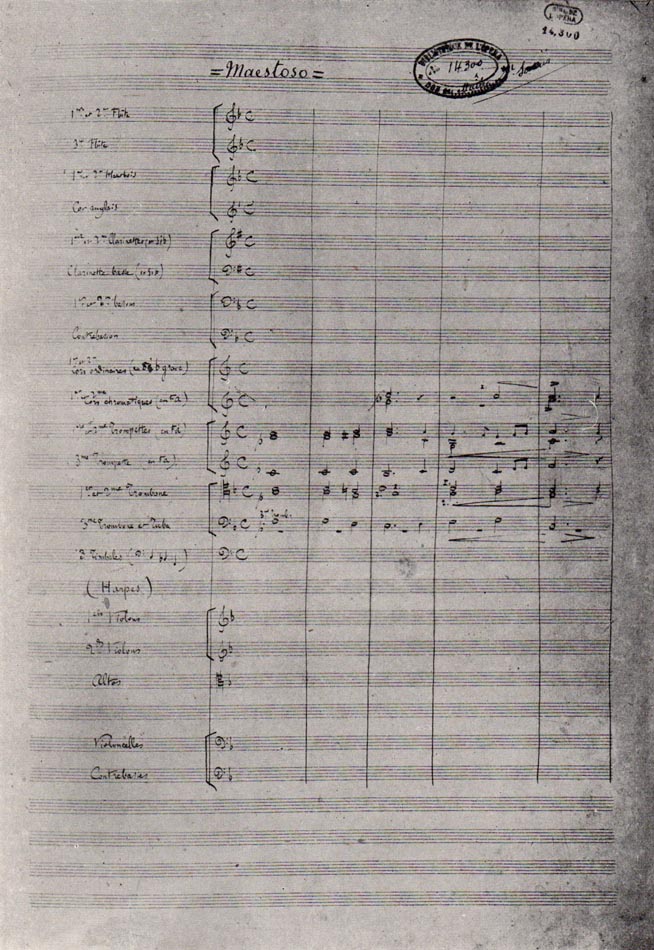 BIBL. DE
L'OPÉRA
14.300
BIBLIOTHÈQUE DE L'OPÉRA
14300
= Maestoso =
1re et 2me Flûte
3me Flûte
1er et 2me Hautbois
Cor anglais
1re et 2me Clarinettes (en si b)
Clarinette basse (en si b)
1er et 2me basson
Contrebasson
Cors ordinaires (en si b grave)
Cors chromatiques (en fa)
1re et 2me Trompettes (en fa)
3me Trompette (en fa)
1er et 2me Trombone
3me Trombone et Tuba
3me Tromb.
3 Timbales
(Harpes)
1ers Violons
2ds Violons
Altos
Violoncelles
Contrebasses